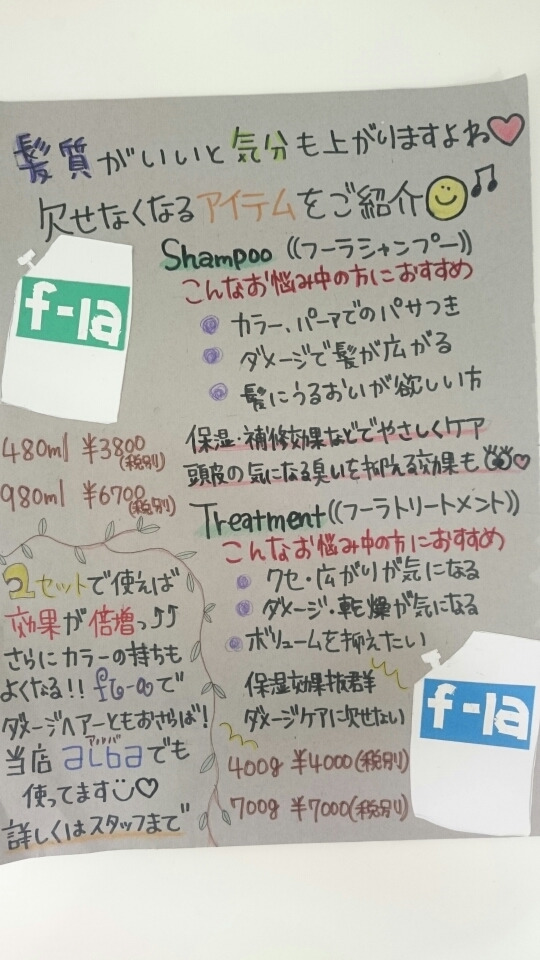 髪質がいいと気分も上がりますよね♡
欠せなくなるアイテムをご紹介
f-la
Shampoo ((フーラシャンプー))
こんなお悩み中の方におすすめ
カラー、パーマでのパサつき
ダメージで髪が広がる
髪にうるおいが欲しい方
保湿・補修効果などでやさしくケア
頭皮の気になる臭いを抑える効果も
480ml ¥3800(税別)
980ml ¥6700(税別)
Treatment((フーラトリートメント))
こんなお悩み中の方におすすめ
クセ・広がりが気になる
ダメージ・乾燥が気になる
ボリュームを抑えたい
保湿効果抜群
ダメージケアに欠せない
400g ¥4000(税別)
700g ¥7000(税別)
f-la
2セットで使えば
効果が倍増っ♪♪
さらにカラーの持ちも
よくなる!!
で
ダメージヘアーともおさらば!
当店albaでも
使ってます♡
詳しくはスタッフまで